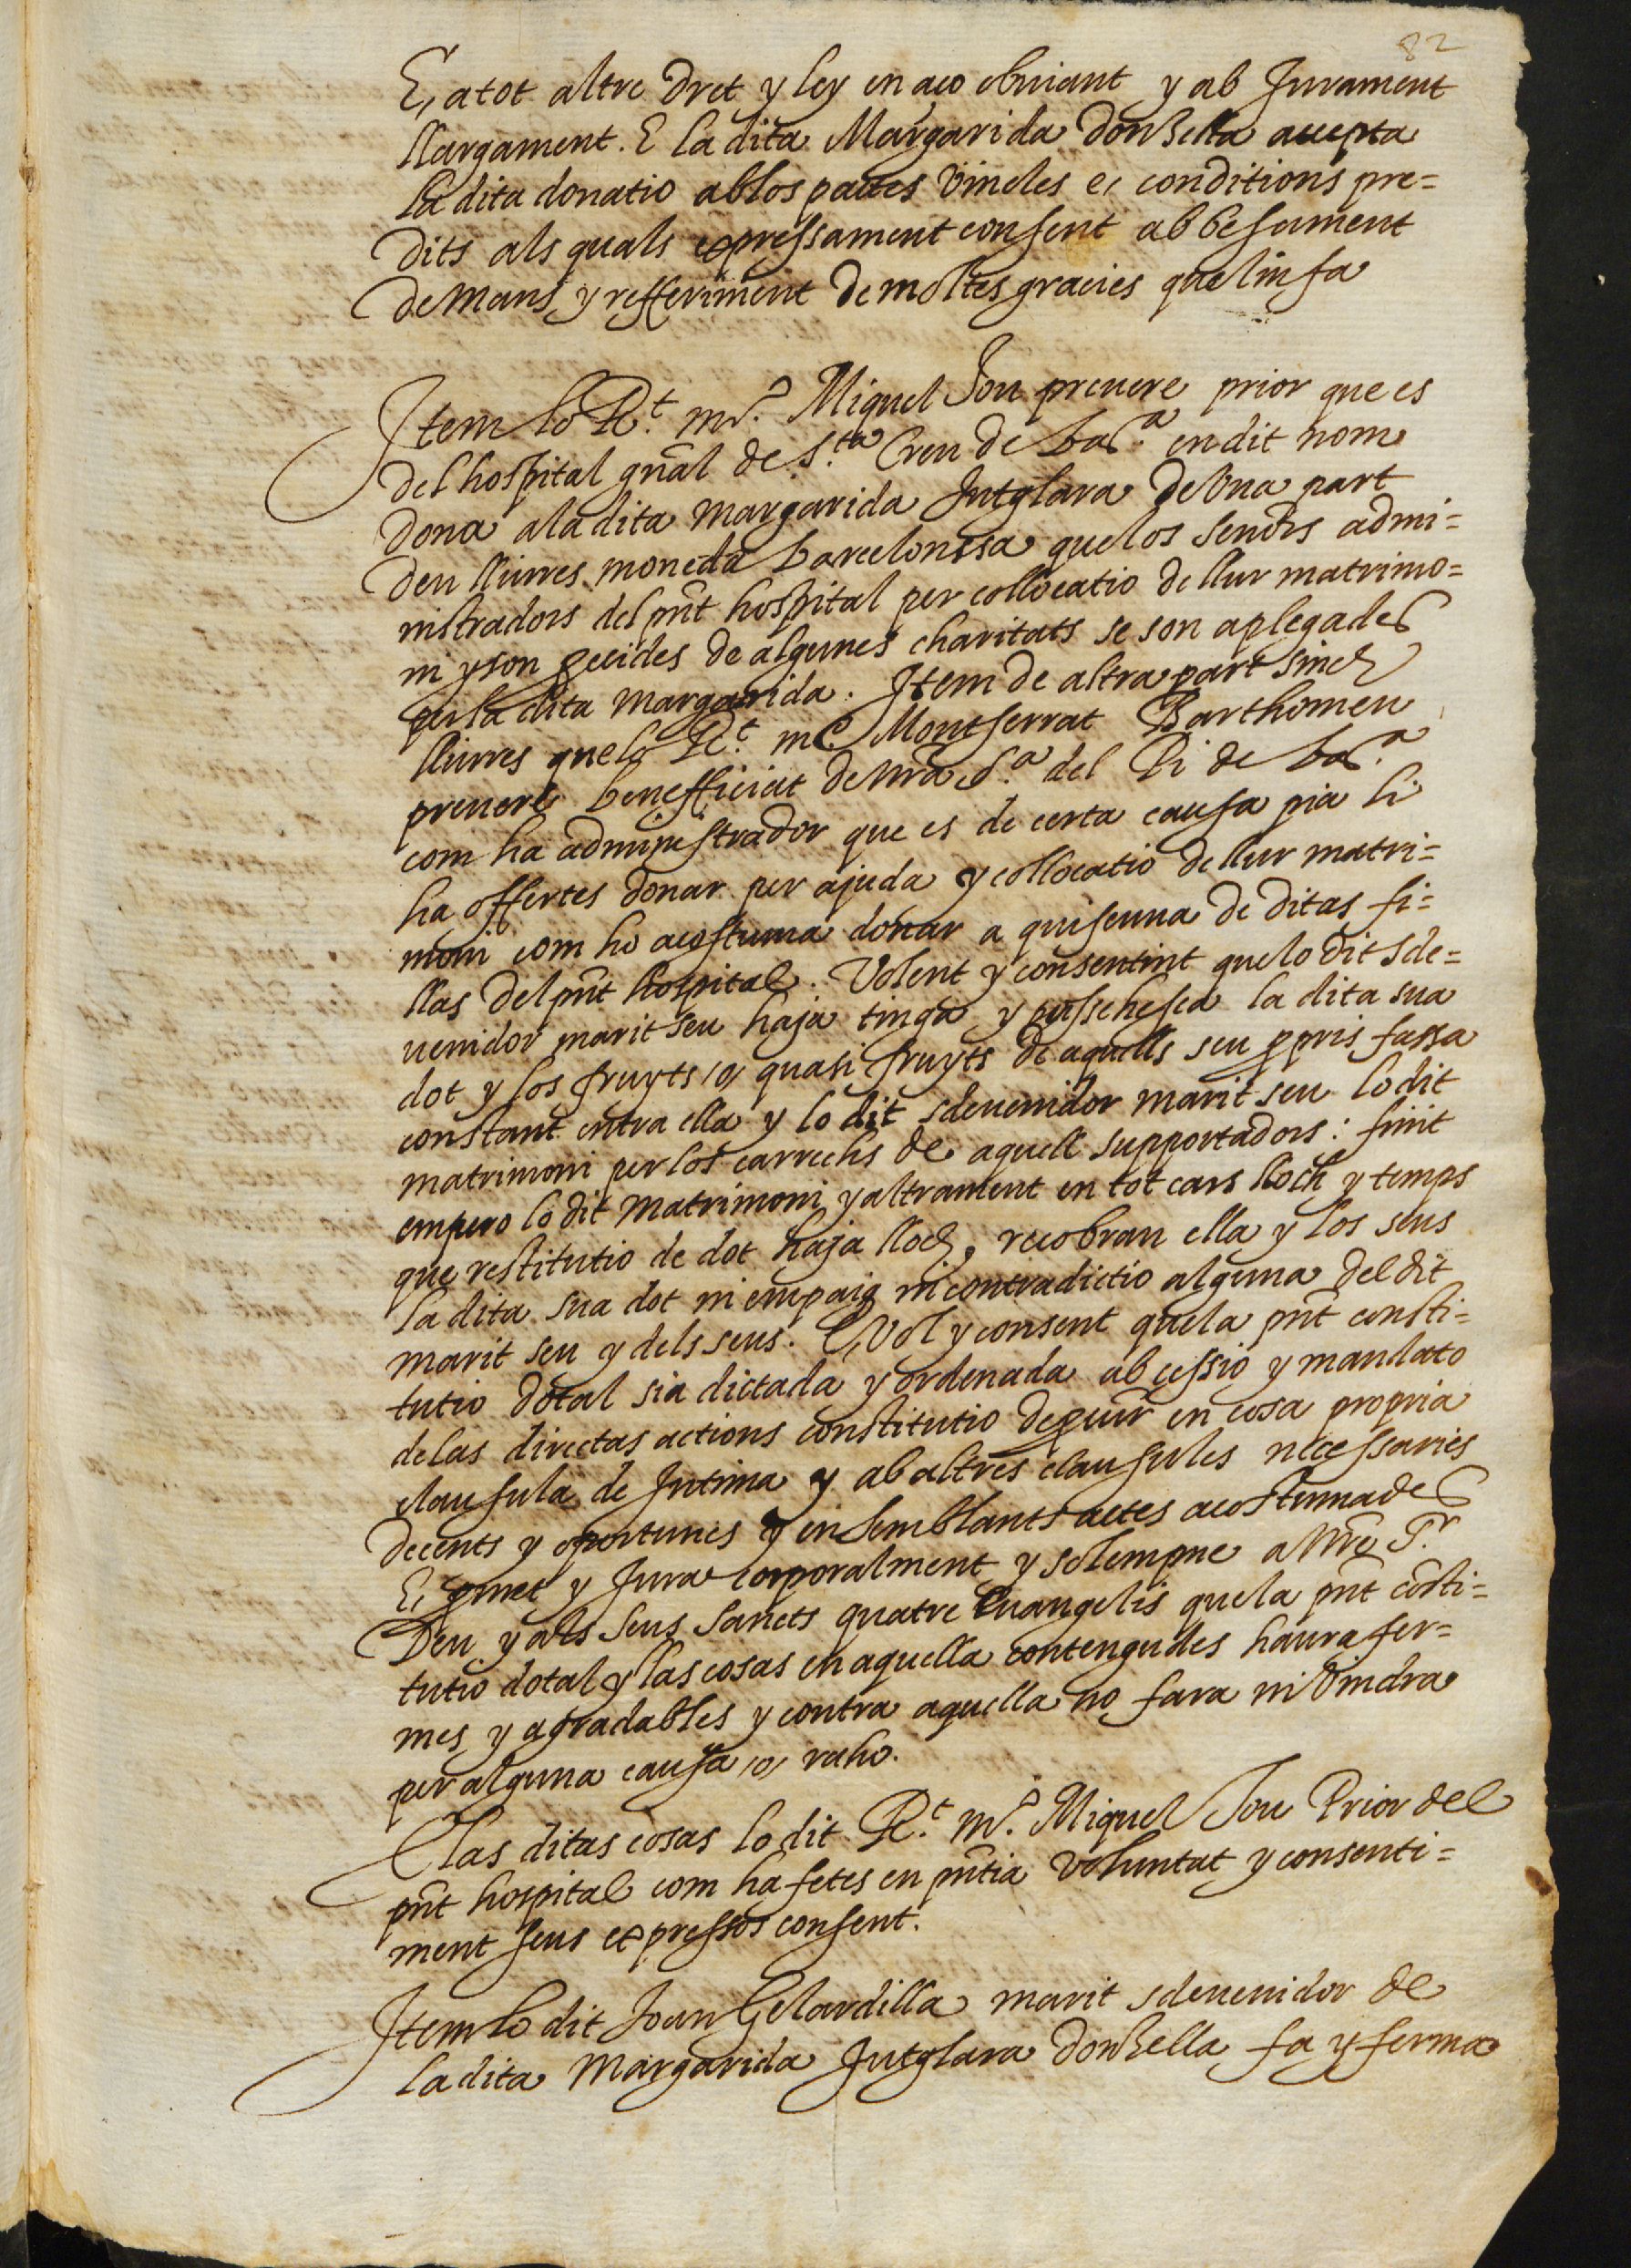 82
E, atot altre dret y ley en aço obuiant y ab Jurament
llargament. E la dita Margarida donsella accepta
la dita donatio ab los pactes vincles e, conditions pre=
dits als quals expressament consent ab besament
de mans y refferiment de moltes gracies que lin fa
Item lo R.t m.r Miquel Jou preuere prior que es
del hospital gñal de S.ta Creu de bar.a en dit nom
dona a la dita Margarida Jutglara de vna part
deu lliures moneda barcelonesa que los senõrs admi=
nistradors del pñt hospital per collocatio de llur matrimo=
ni y son exides de algunes charitats se son aplegades
per la dita margarida. Item de altra part sinch
lliures que lo R.t m.e Montserrat Barthomeu
preuere beneficiat de nrã S.a del Pi de bar.a
com ha administrador que es de certa causa pia li
ha offertes donar per ajuda y collocatio de llur matri=
moni com ho acostuma donar a quiseuna de ditas fi=
llas del pñt hospital. Volent y consentint que lo dit sde=
uenidor marit seu haja tinga y possehesca la dita sua
dot y los fruyts /o/ quasi fruyts de aquells seu ppris fassa
constant entra ella y lo dit sdeuenidor marit seu lo dit
matrimoni per los carrechs de aquell supportadors: finit
empero lo dit matrimoni y altrament en tot cars lloch y temps
que restitutio de dot haja lloch, recobran ella y los seus
la dita sua dot ni empaig ni contradictio alguna del dit
marit seu y dels seus. E, vol y consent que la pñt consti=
tutio dotal sia dictada y ordenada ab cessio y mandato
de las directas actions constitutio de pcur̃ en cosa propria
clausula de Intima y ab altres clausules necessaries
decents y oportunes y en semblants actes acostumades
E, pmet y Jura corporalment y solempne a nrẽ S.r
Deu y als seus sancts quatre Euangelis que la pñt cõsti=
tutio dotal y las cosas en aquella contengudes haura fer=
mes y agradables y contra aquella no fara ni vindra
per alguna causa /o/ raho.
E las ditas cosas lo dit R.t m.r Miquel Jou Prior del
pñt hospital com ha fetes en pñtia voluntat y consenti=
ment seus expressos consent.
Item lo dit Joan Gelardilla marit sdeuenidor de
la dita Margarida Jutglara donsella fa y ferma